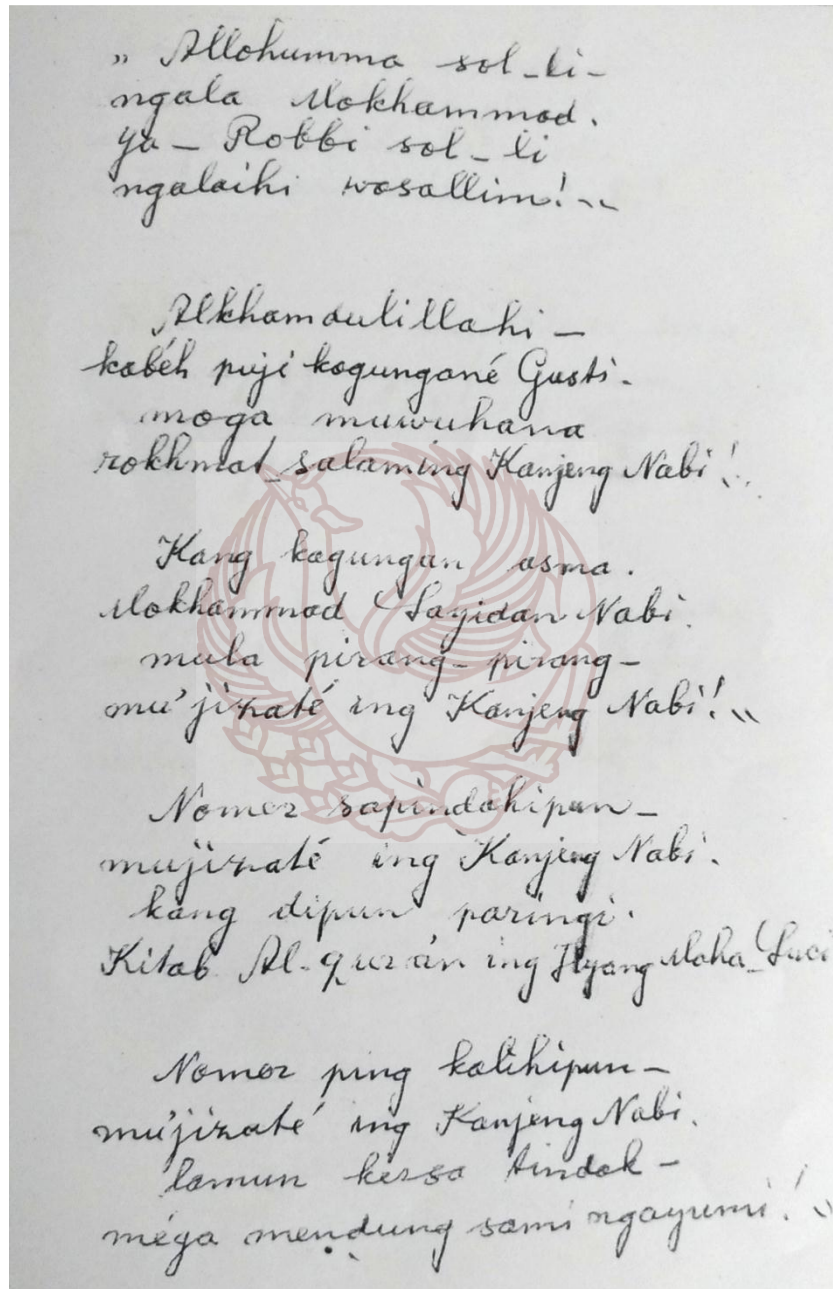 „ Allohumma sol-li-
ngala Mokhammad.
ya - Robbi sol - li
ngalaihi wasallim!„
Alkhamdulillahi -
kabéh puji kagungané Gusti.
moga muwuhana
rokhmat salaming Kanjeng Nabi!..
Kang kagungan asma.
Mokhammad Sayidan Nabi.
mula pirang-pirang-
mu'jizaté ing Kanjeng Nabi!„
Nomer sapindahipun-
mujizaté ing Kanjeng Nabi.
kang dipun paringi.
Kitab Al-Qur'an ing Hyang Maha-Suci
Nomer ping kalihipun-
mu'jizaté ing Kanjeng Nabi.
lamun kersa tindak -
méga mendung sami ngayumi!„